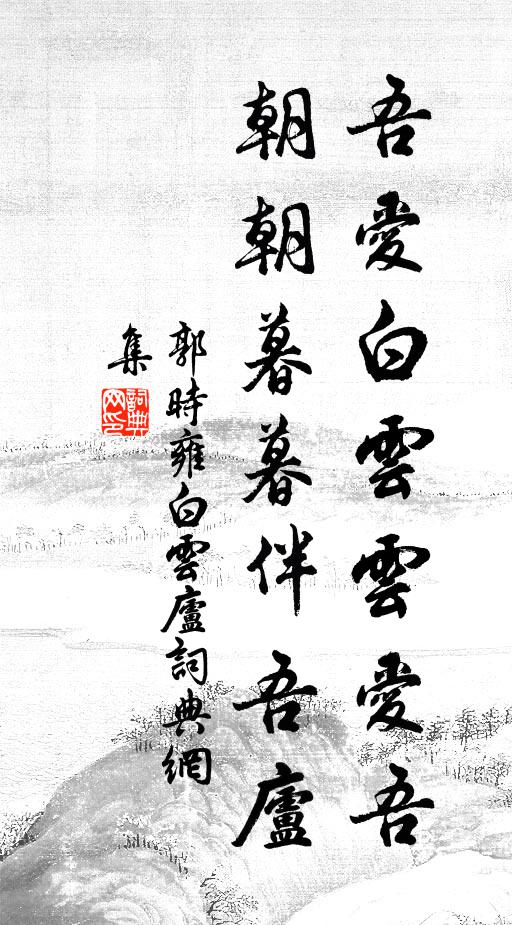 吾愛白雲雲愛吾
朝朝暮暮伴吾廬
郭時雍白雲廬詞典網
集
詞典
网印